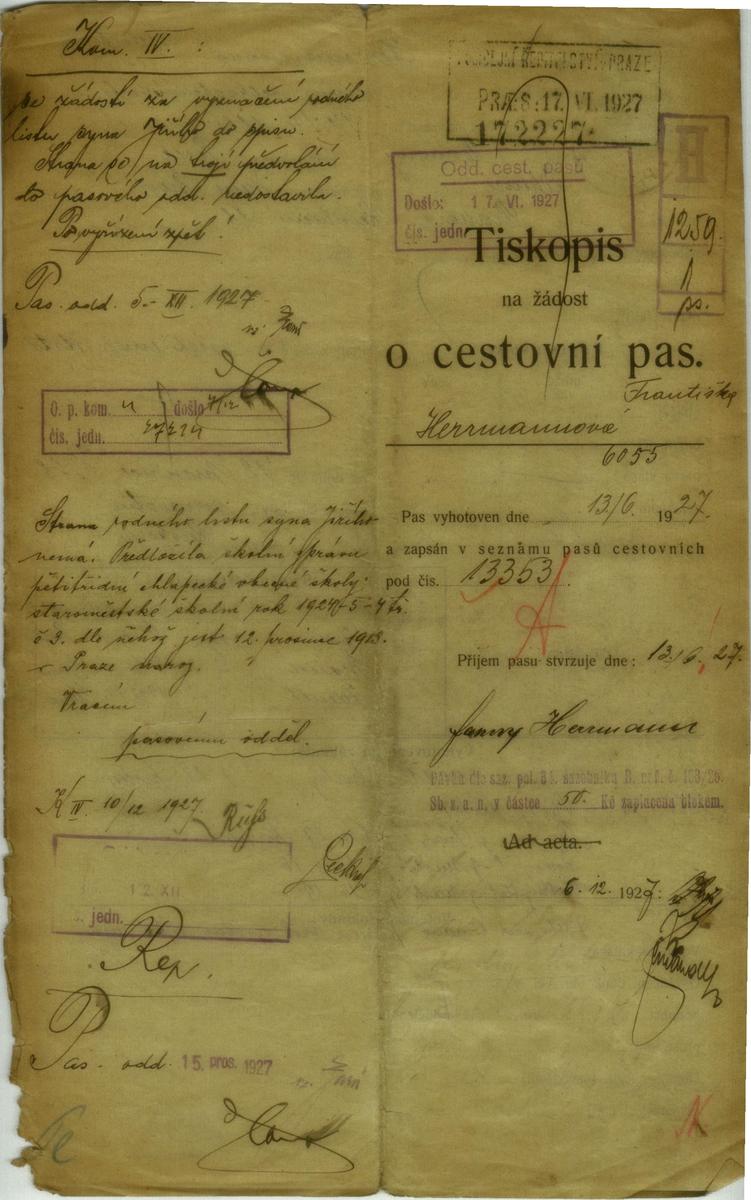 Kom. IV. :
se žádostí za vyznačení rodného
listu syna Jiřího do spisu.
Strana se na trojí předvolání
do pasového odd. nedostavila.
Po vyřízení zpět!
Pas. odd. 5. XII. 1927
O. p. kom. IV došlo 7/12
čís. jedn. 27214
Strana rodného listu syna Jiřího
nemá. Předložila školní zprávu
pětitřídní chlapecké obecné školy
staroměstské školní rok 1924-5-4 tr.
č 3. dle něhož jest 12. prosince 1913.
v Praze naroz.
Vracím
pasovému odděl.
K IV 10/12 1927
12 XII
jedn.
Rep.
Pas. odd. 15. pros. 1927
POLICEJNÍ ŘEDITELSTVÍ V PRAZE
PRÆS. 17. VI. 1927
172227
Odd. cest. pasů
Došlo: 17. VI. 1927
čís. jedn.
H
1259.
1
ps.
Tiskopis
na žádost
o cestovní pas.
Františka
Herrmannová
6055
Pas vyhotoven dne 13/6. 1927.
a zapsán v seznamu pasů cestovních
pod čís. 13353.
A
Příjem pasu stvrzuje dne: 13/6. 27.
Fanny Herrmann
Dávka dle saz. pol. sazebníku
Sb. z. a n. v částce 50.- Kč zaplacena blokem.
Ad acta.
6. 12. 1927.